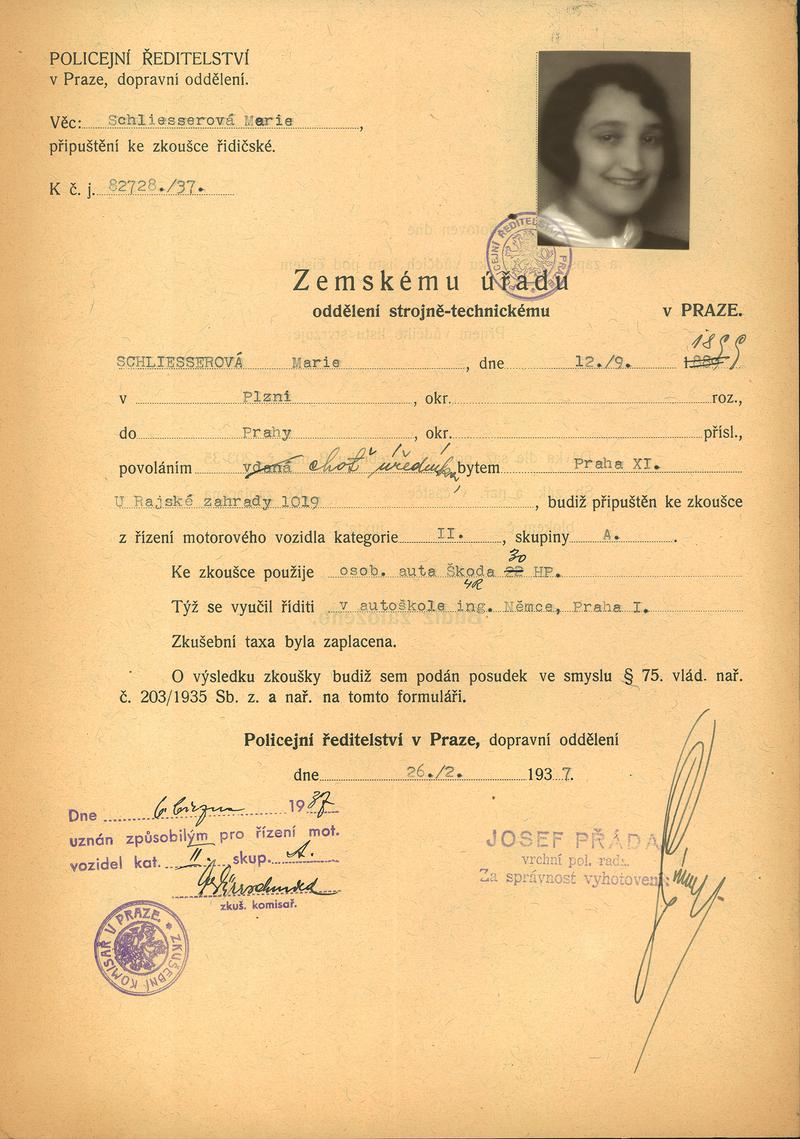 POLICEJNÍ ŘEDITELSTVÍ
v Praze, dopravní oddělení.
Věc: Schliesserová Marie,
připuštění ke zkoušce řidičské.
K č. j. 82728./37.
Zemskému úřadu
oddělení strojně-technickému v PRAZE.
1899
SCHLIESSEROVÁ Marie, dne 12./9. 1889
v Plzni, okr. roz.,
do Prahy, okr. přísl.,
povoláním vdaná choť úředníka bytem Praha XI.
U Rajské zahrady 1019, budiž připuštěn ke zkoušce
z řízení motorového vozidla kategorie II., skupiny A..
30
Ke zkoušce použije osob. auta Škoda HP.
Týž se vyučil říditi v autoškole ing. Němce, Praha I.
Zkušební taxa byla zaplacena.
O výsledku zkoušky budiž sem podán posudek ve smyslu § 75. vlád. nař.
č. 203/1935 Sb. z. a nař. na tomto formuláři.
Policejní ředitelství v Praze, dopravní oddělení
dne 26./2. 1937.
Dne 6. března 1937
uznán způsobilým pro řízení mot.
vozidel kat. II. skup. A.
zkuš. komisař.
ZKUŠEBNÍ KOMISAŘ V PRAZE.
JOSEF PŘÁDA
vrchní pol. rada.
Za správnost vyhotovení